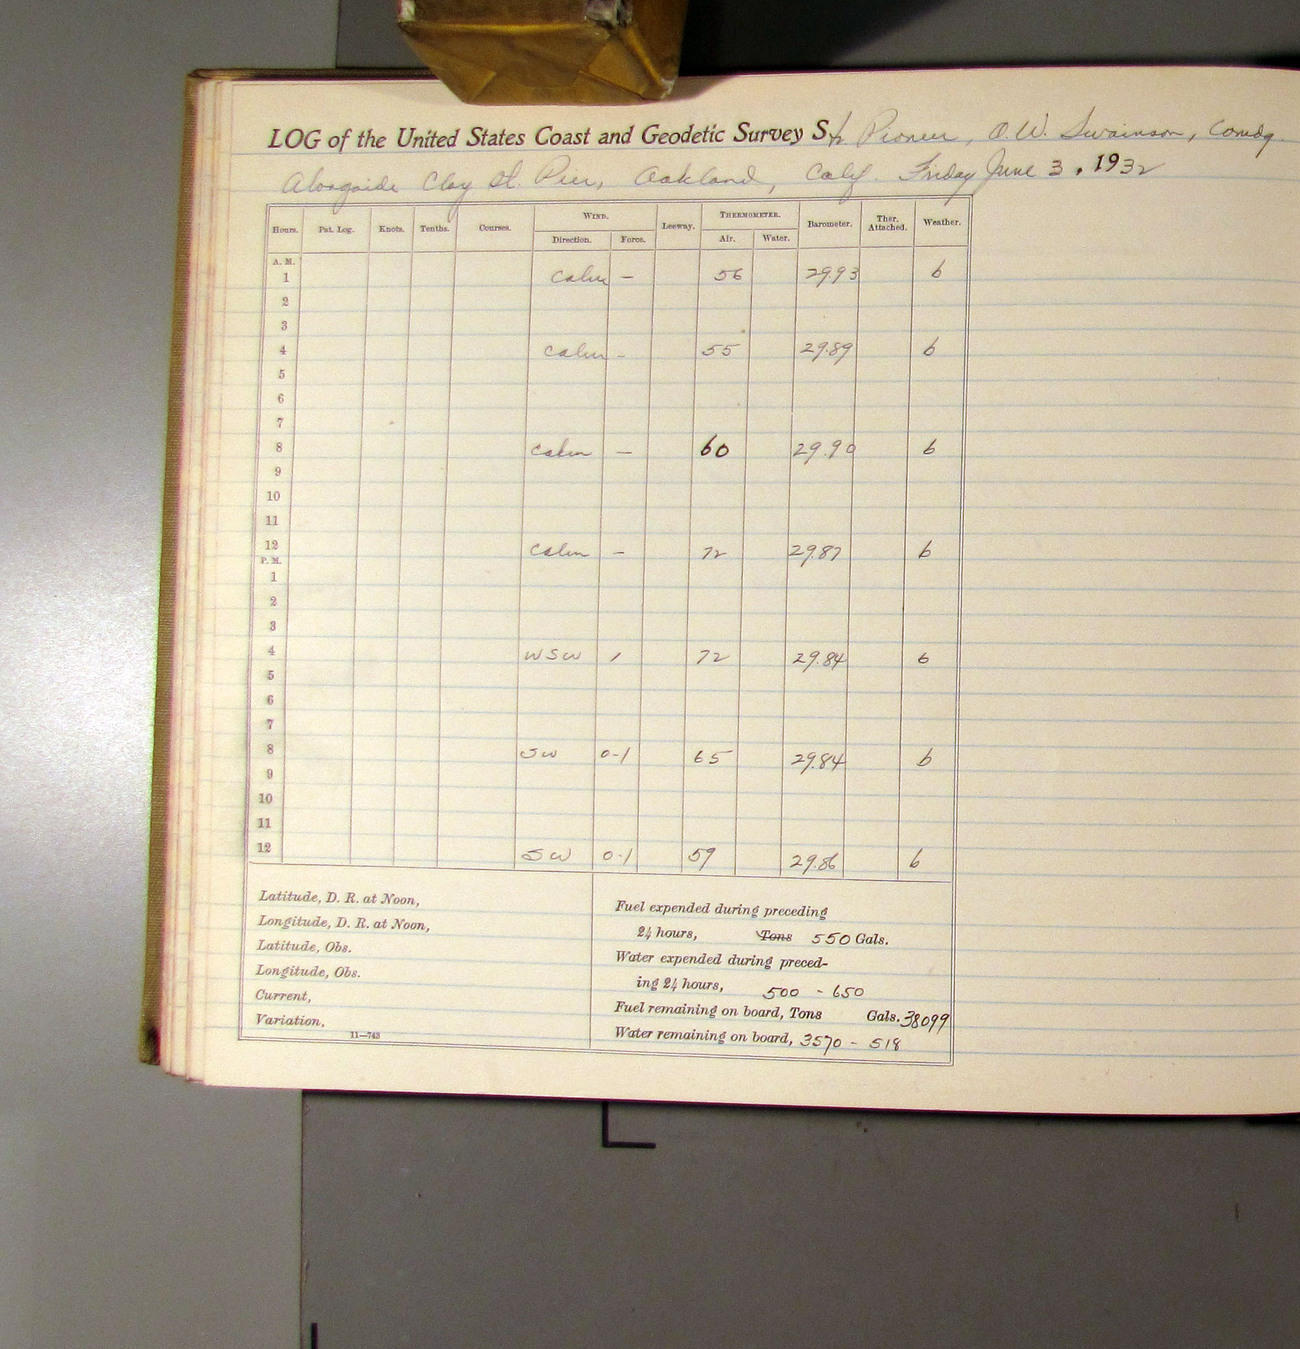 LOG of the United States Coast and Geodetic Survey Str Pioneer, O.W. Swainson, Comdg.
Alongside Clay St. Pier, Oakland, Calif. Friday June 3, 1932
Hours. Pat. Log. Knots. Tenths. Courses. WIND. Leeway. THERMOMETER. Barometer. Ther. Attached. Weather.
Direction. Force. Air. Water.
A. M.
1 Calm – 56 29.93 b
2
3
4 Calm - 55 29.89 b
5
6
7
8 Calm – 60 29.90 b
9
10
11
12 Calm – 72 29.87 b
P. M.
1
2
3
4 WSW 1 72 29.84 b
5
6
7
8 SW 0-1 65 29.84 b
9
10
11
12 SW 0-1 59 29.86 b
Latitude, D. R. at Noon,
Longitude, D. R. at Noon,
Latitude, Obs.
Longitude, Obs.
Current,
Variation,
11—743
Fuel expended during preceding
24 hours, Tons 550 Gals.
Water expended during preced-
ing 24 hours, 500 - 650
Fuel remaining on board, Tons Gals. 38099
Water remaining on board, 3570 - 518